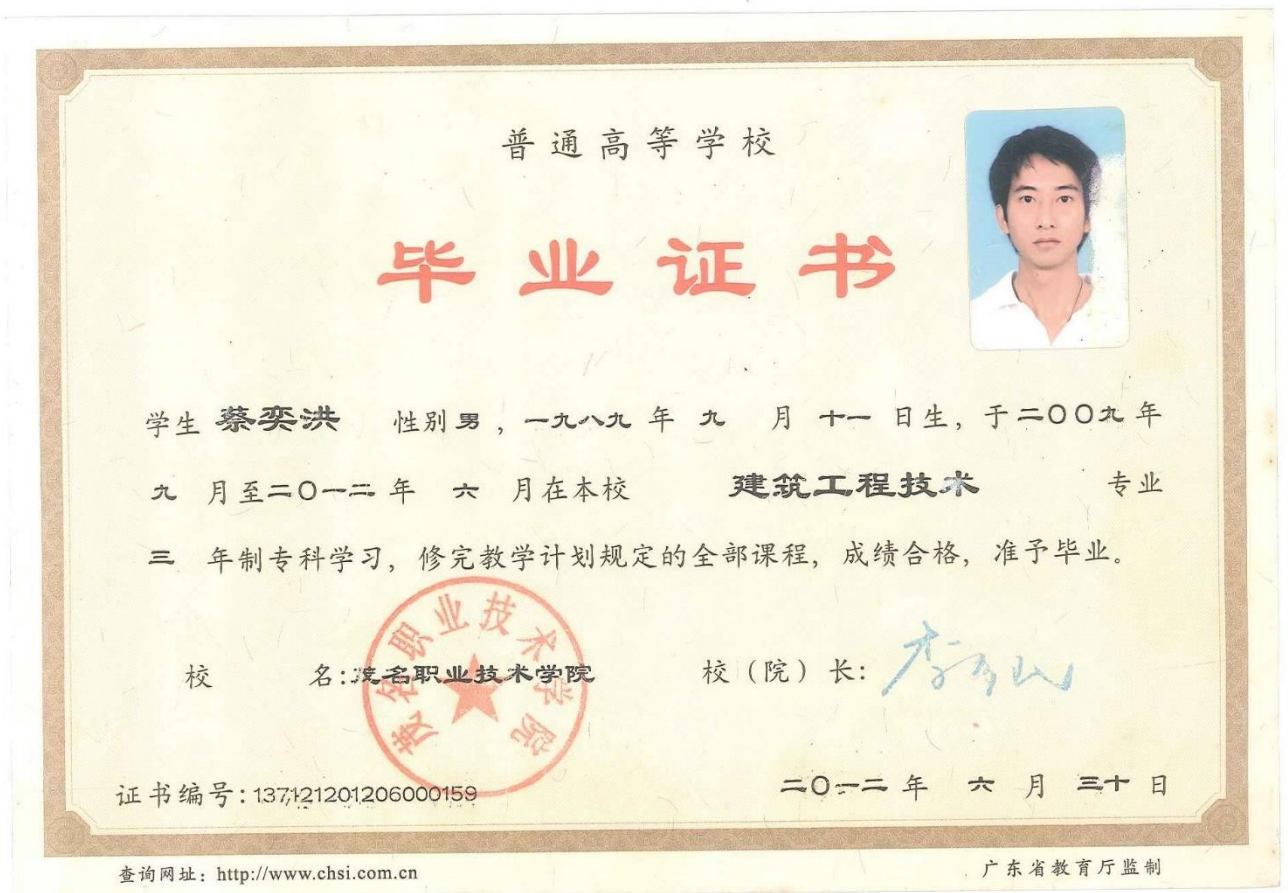 普通高等学校
毕业证书
学生 蔡奕洪 性别 男，一九八九 年 九 月 十一 日生，于二〇〇九年
九 月至二〇一二 年 六 月在本校 建筑工程技术 专业
三 年制专科学习，修完教学计划规定的全部课程，成绩合格，准予毕业。
茂名职业技术学院
校 名：茂名职业技术学院 校（院）长：
证书编号：137121201206000159 二〇一二 年 六 月 三十 日
查询网址：http://www.chsi.com.cn 广东省教育厅监制